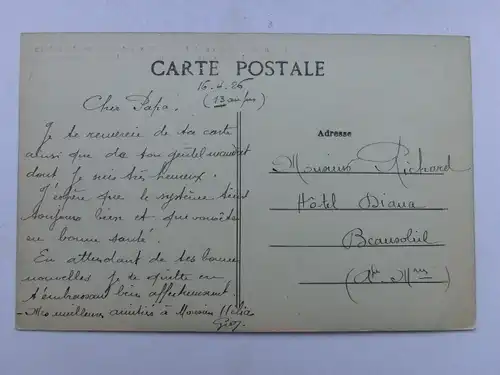 CARTE POSTALE
16.4.26
(13 ans)
Cher Papa.
Je te remercie de ta carte
ainsi que de ton gentil mandat
dont je suis très heureux.
J'espère que le système tient
toujours bien et que vous êtes
en bonne santé.
En attendant de tes bonnes
nouvelles je te quitte en
t'embrassant bien affectueusement.
Mes meilleures amitiés à Monsieur
Adresse
Monsieur Richard
Hôtel Diana
Beausoleil
(Alpes Mmes)